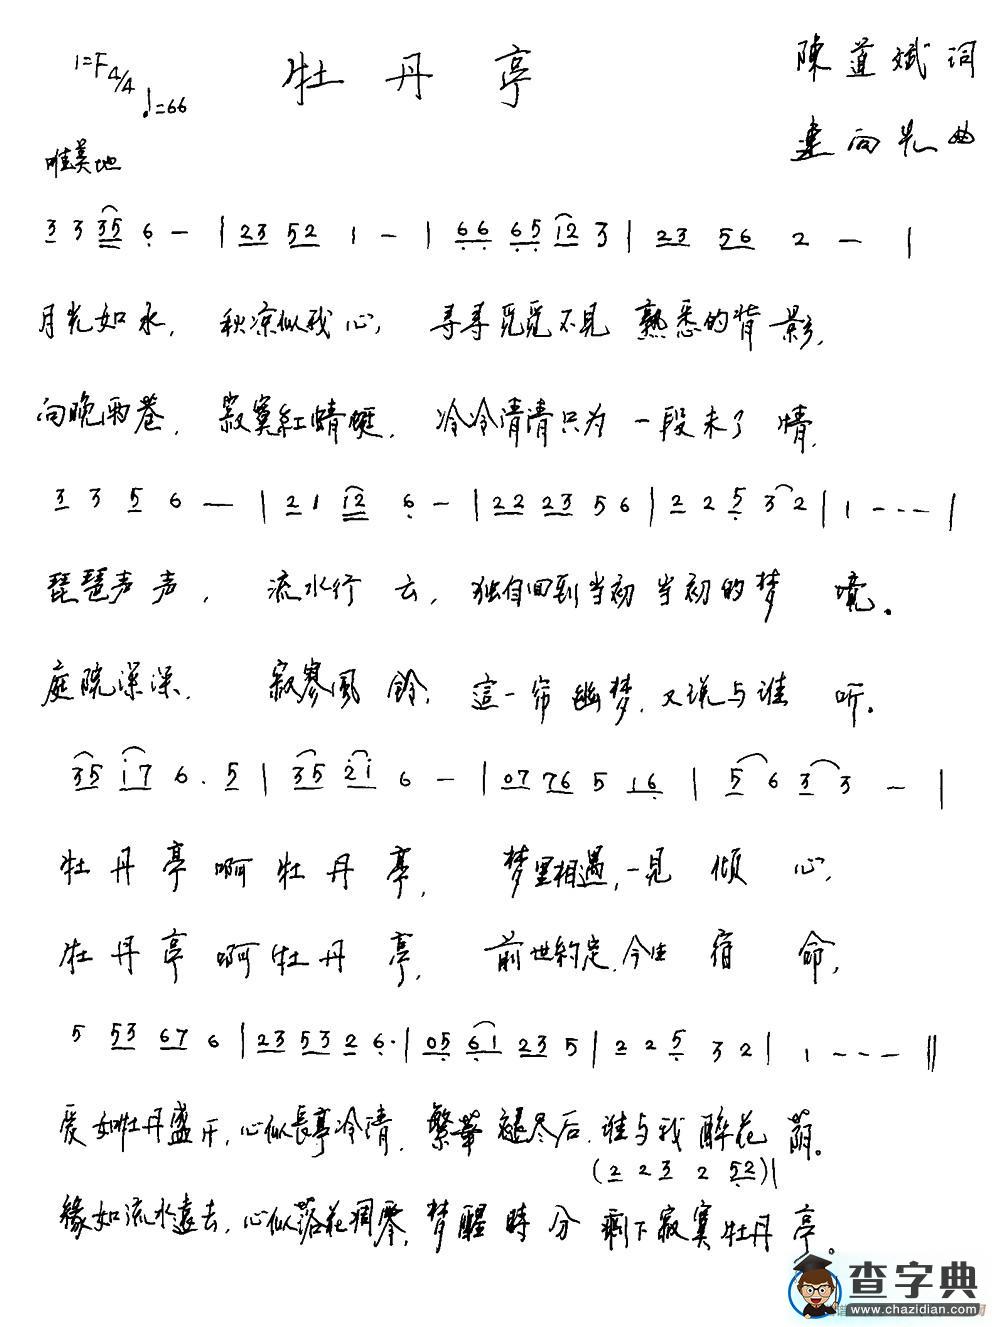 1=F 4/4 牡丹亭 陳道斌词
♩=66 連向先曲
唯美地
3 3 35 6 - | 23 52 1 - | 66 65 12 3 | 23 56 2 - |
月光如水, 秋凉似我心, 寻寻觅觅不见 熟悉的背影,
向晚雨巷, 寂寞紅蜻蜓, 冷冷清清只为 一段未了情,
3 3 5 6 - | 2 1 12 6 - | 22 23 5 6 | 2 2 5 3 2 | 1 - - - |
琵琶声声, 流水行云, 独自回到当初 当初的梦境。
庭院深深, 寂寥風鈴, 這一帘幽梦, 又说与谁听。
35 17 6. 5 | 35 21 6 - | 07 76 5 16 | 5 6 3 3 - |
牡丹亭啊牡丹亭, 梦里相遇,一見傾心,
牡丹亭啊牡丹亭, 前世約定,今生宿命,
5 53 67 6 | 23 53 2 6. | 05 61 23 5 | 2 2 5 3 2 | 1 - - - ||
爱如牡丹盛开,心似長亭冷清, 繁華褪尽后,谁与我醉花荫。
(2 2 3 2 52)|
緣如流水遠去,心似落花凋零,梦醒時分 剩下寂寞牡丹亭。
查字典
www.chazidian.com